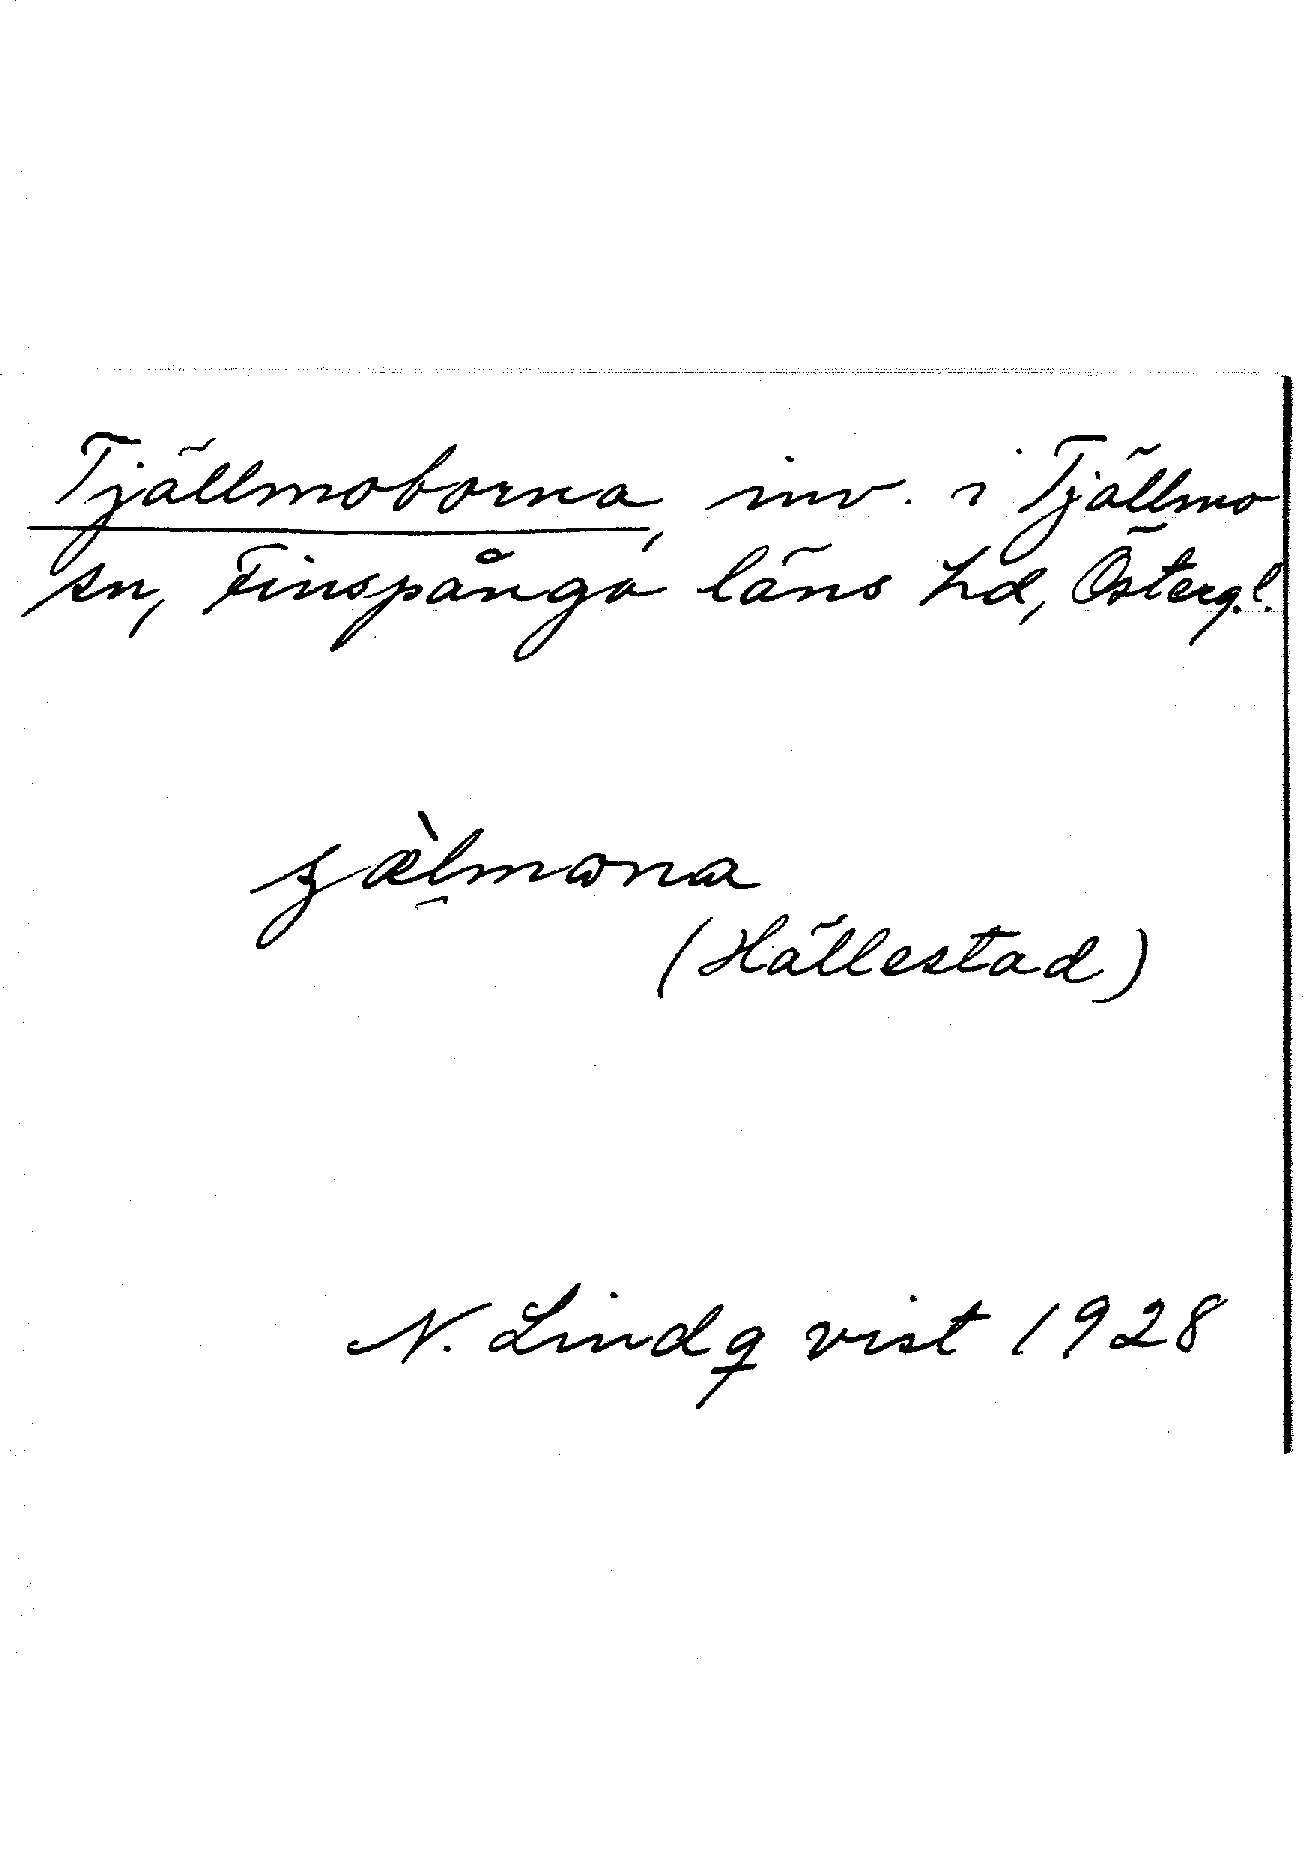 Tjällmoborna, inv. i Tjällmo
sn, Finspånga läns hd, Österg.l.
(Hällestad)
N. Lindqvist 1928